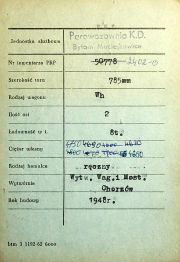 P.K.P.
Jednostka służbowa Parowozownia K.D.
Bytom Maciejkowice
Nr inwentarza PKP 50778 2402-0
Szerokość toru 785mm
Rodzaj wagonu Wh
Ilość osi 2
Ładowność w t. 8t.
Ciężar własny 4600
Rodzaj hamulca ręczny
Wytwórnia Wytw. Wag. i Most.
Chorzów
Rok budowy 1948r.